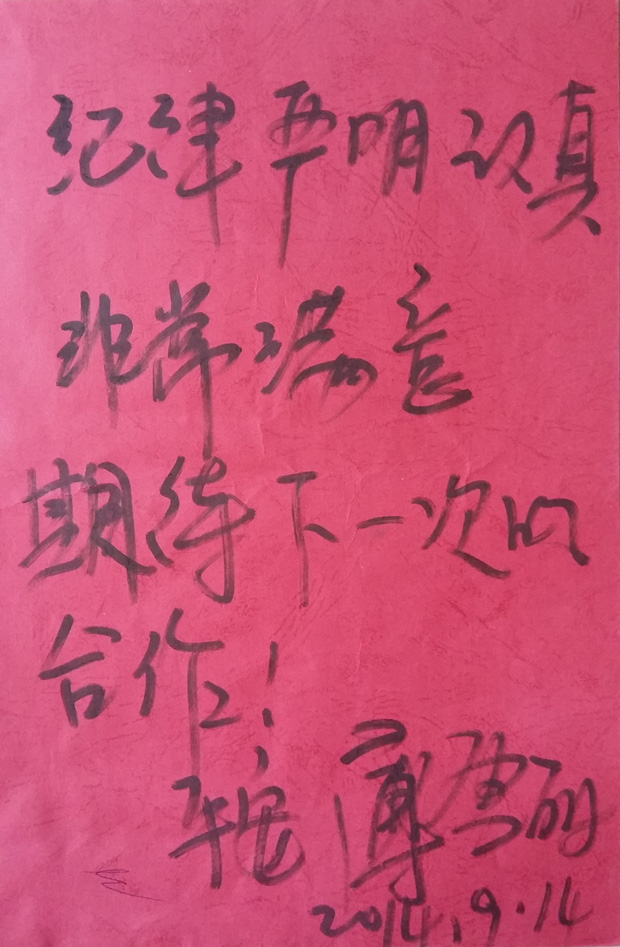 纪律严明认真
非常满意
期待下一次的
合作!
平安
2014.9.14